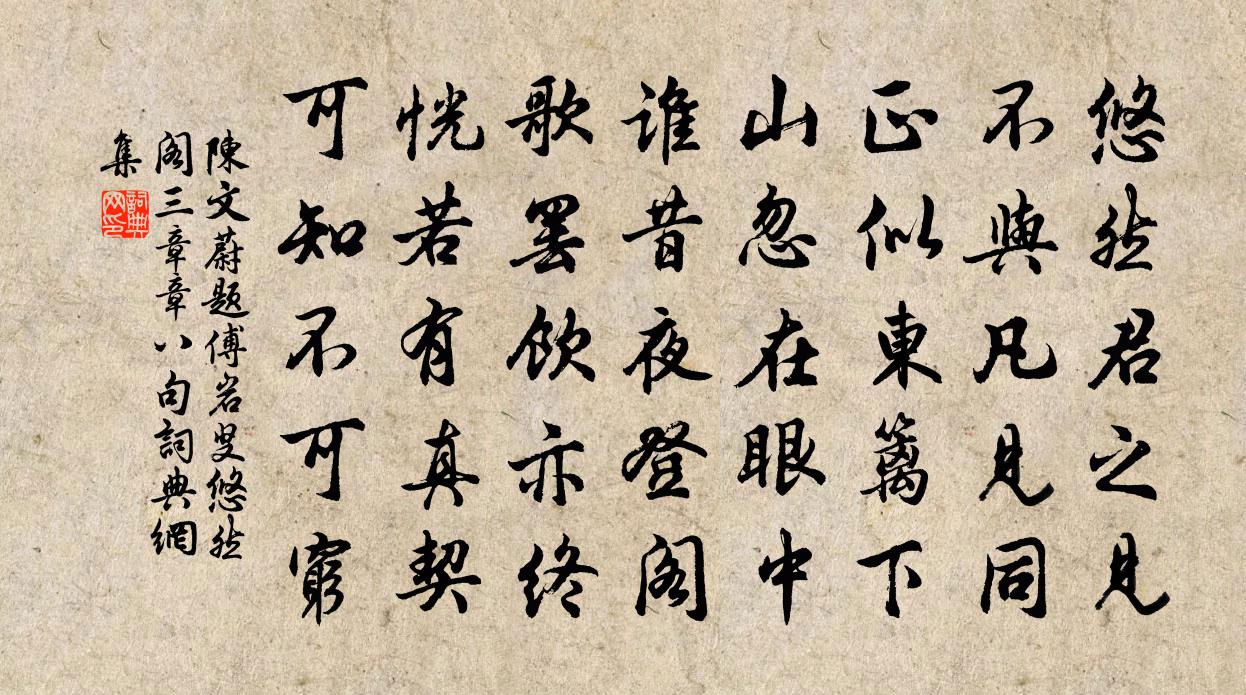 悠然君之見
不與凡見同
正似東籬下
山忽在眼中
誰昔夜登閣
歌罢飲亦終
恍若有真契
可知不可窮
陳文蔚題傅岩叟悠然
閣三章章八句詞典網
集
詞典
网印